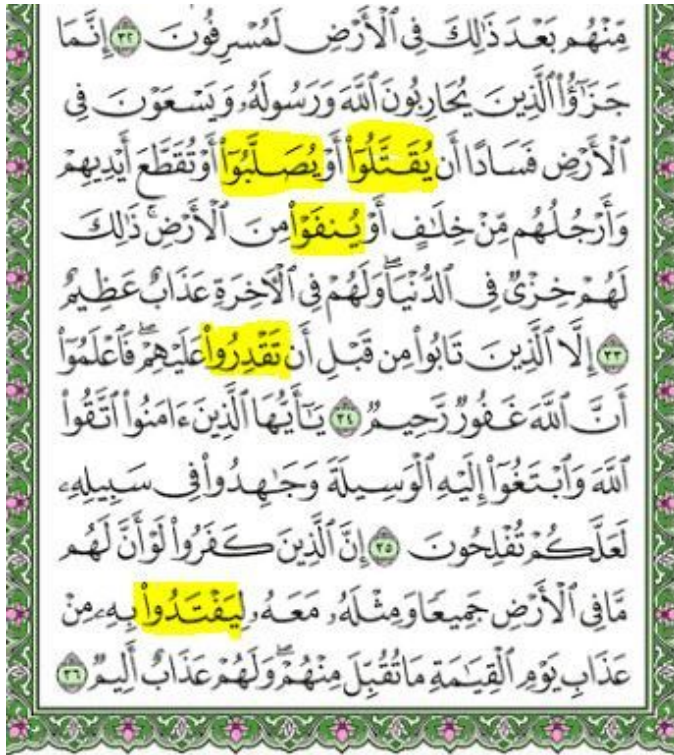 مِّنْهُم بَعْدَ ذَٰلِكَ فِي ٱلْأَرْضِ لَمُسْرِفُونَ ٣٢ إِنَّمَا
جَزَٰٓؤُا۟ ٱلَّذِينَ يُحَارِبُونَ ٱللَّهَ وَرَسُولَهُۥ وَيَسْعَوْنَ فِي
ٱلْأَرْضِ فَسَادًا أَن يُقَتَّلُوٓا۟ أَوْ يُصَلَّبُوٓا۟ أَوْ تُقَطَّعَ أَيْدِيهِمْ
وَأَرْجُلُهُم مِّنْ خِلَٰفٍ أَوْ يُنفَوْا۟ مِنَ ٱلْأَرْضِ ۚ ذَٰلِكَ
لَهُمْ خِزْىٌ فِي ٱلدُّنْيَا ۖ وَلَهُمْ فِي ٱلْءَاخِرَةِ عَذَابٌ عَظِيمٌ
٣٣ إِلَّا ٱلَّذِينَ تَابُوا۟ مِن قَبْلِ أَن تَقْدِرُوا۟ عَلَيْهِمْ ۖ فَٱعْلَمُوٓا۟
أَنَّ ٱللَّهَ غَفُورٌ رَّحِيمٌ ٣٤ يَٰٓأَيُّهَا ٱلَّذِينَ ءَامَنُوا۟ ٱتَّقُوا۟
ٱللَّهَ وَٱبْتَغُوٓا۟ إِلَيْهِ ٱلْوَسِيلَةَ وَجَٰهِدُوا۟ فِي سَبِيلِهِۦ
لَعَلَّكُمْ تُفْلِحُونَ ٣٥ إِنَّ ٱلَّذِينَ كَفَرُوا۟ لَوْ أَنَّ لَهُم
مَّا فِي ٱلْأَرْضِ جَمِيعًا وَمِثْلَهُۥ مَعَهُۥ لِيَفْتَدُوا۟ بِهِۦ مِنْ
عَذَابِ يَوْمِ ٱلْقِيَٰمَةِ مَا تُقُبِّلَ مِنْهُمْ ۖ وَلَهُمْ عَذَابٌ أَلِيمٌ ٣٦